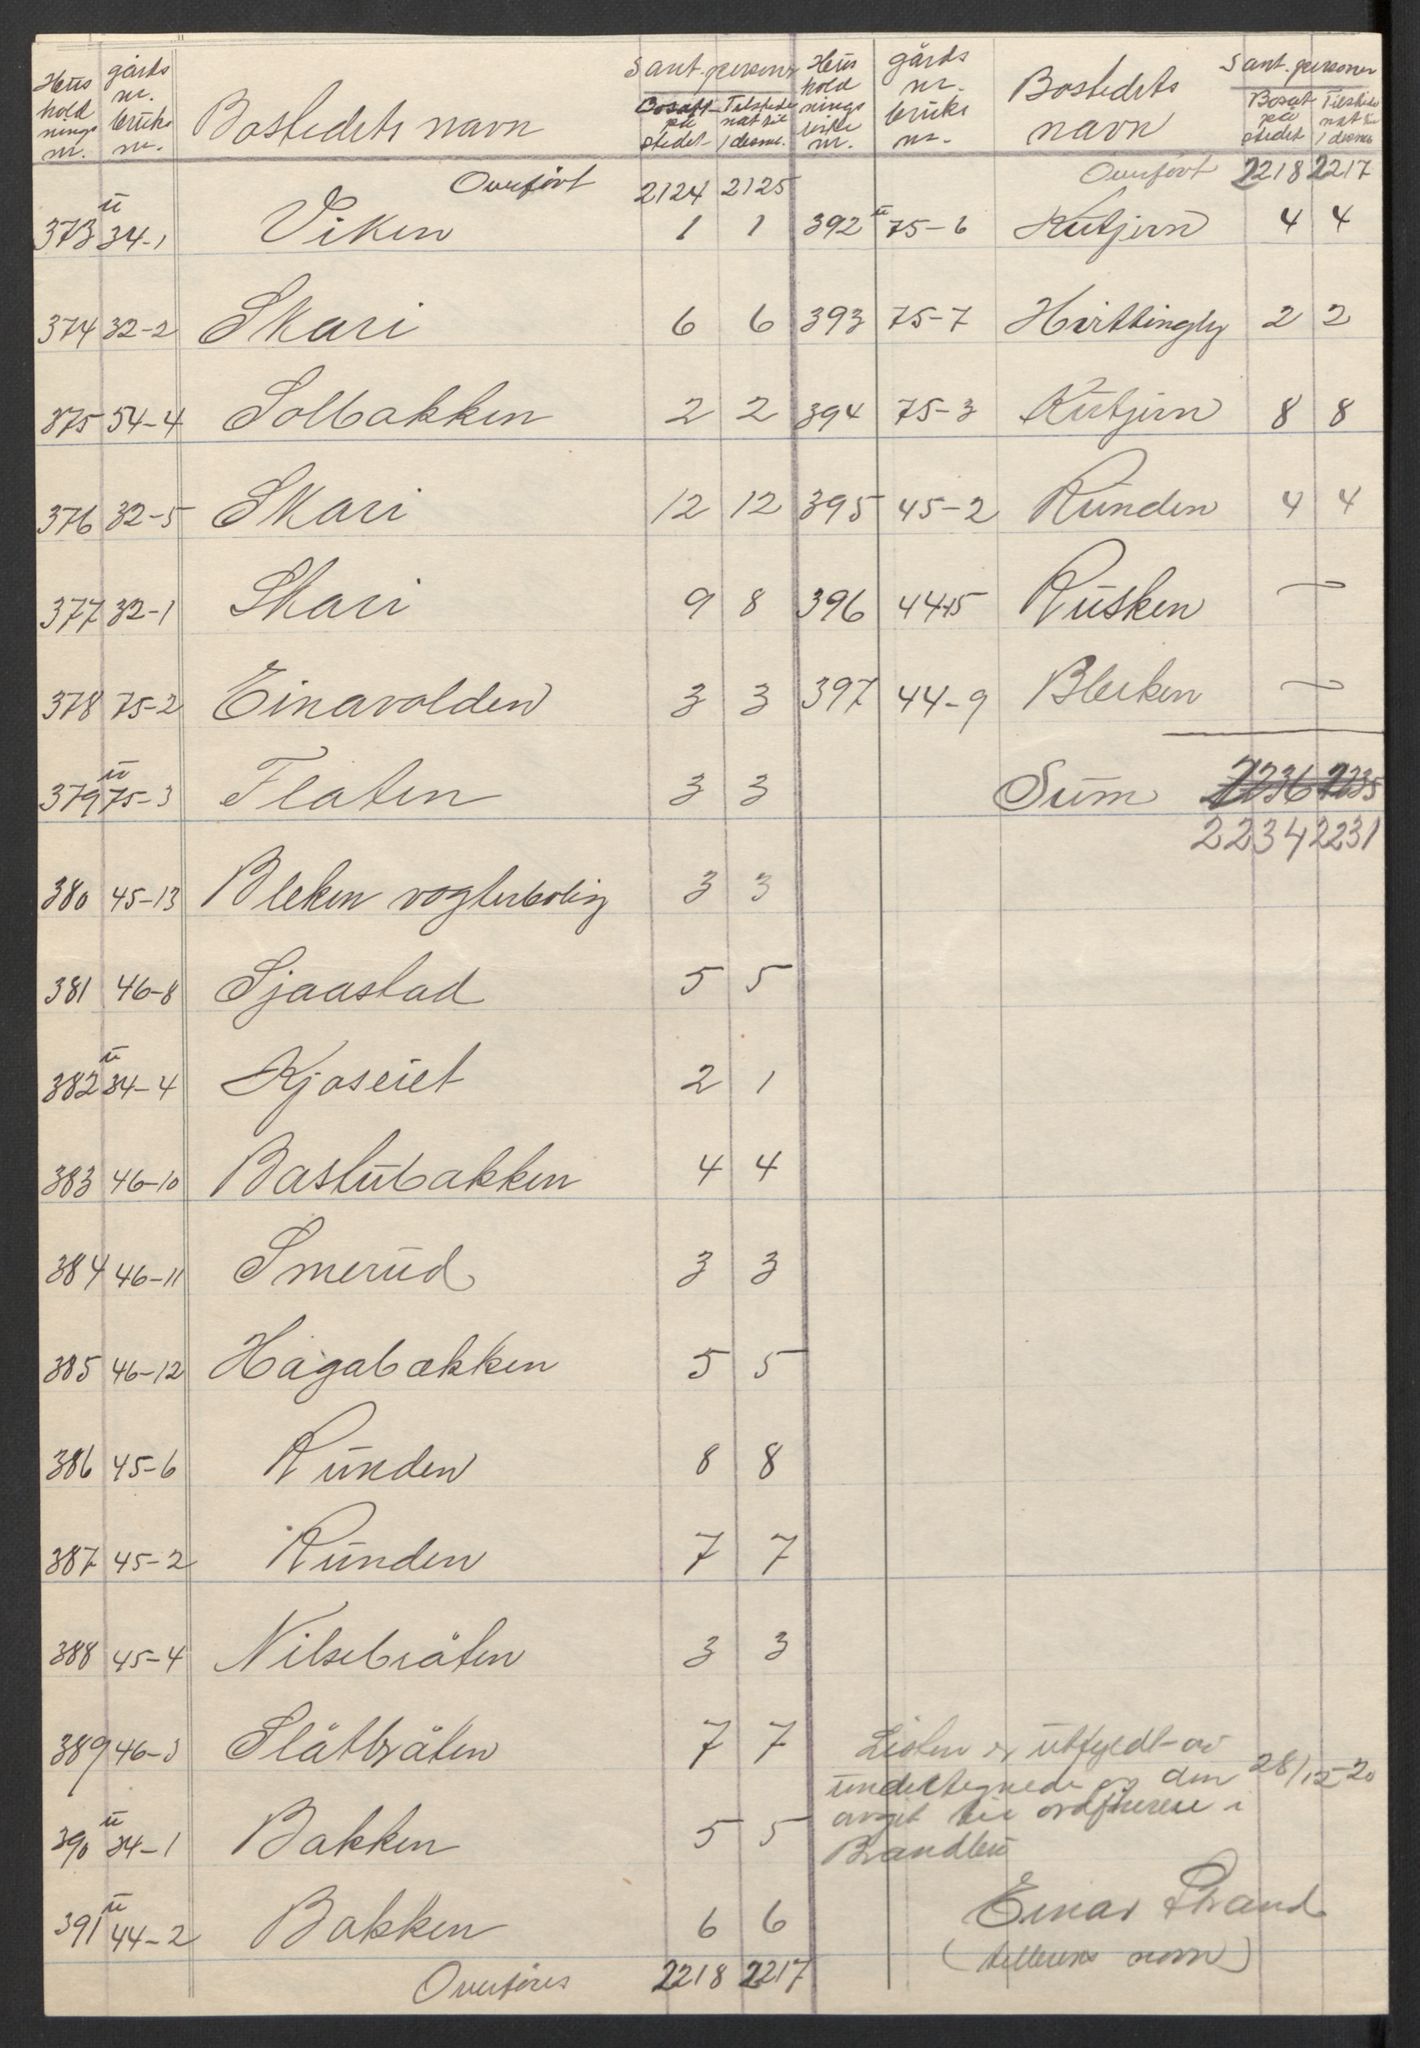 Hus hold nings nr. | gårds nr. bruks nr. | Bostedets navn | S ant. personer | Bosatt på stedet | Tilstede nat til 1 desmb.
Overført 2124 2125
373 u 34-1 Viken 1 1
374 32-2 Skari 6 6
375 54-4 Solbakken 2 2
376 32-5 Skari 12 12
377 32-1 Skari 9 8
378 75-2 Einavolden 3 3
379 u 75-3 Flaten 3 3
380 45-13 Bleken vogterbolig 3 3
381 46-8 Sjaastad 5 5
382 u 34-4 Kjoseiet 2 1
383 46-10 Bastubakken 4 4
384 46-11 Smerud 3 3
385 46-12 Hagabakken 5 5
386 45-6 Runden 8 8
387 45-2 Runden 7 7
388 45-4 Nilsebråten 3 3
389 46-3 Slåtbråten 7 7
390 u 34-1 Bakken 5 5
391 u 44-2 Bakken 6 6
Overføres 2218 2217
Hus hold nings liste nr. | gårds nr. bruks nr. | Bostedets navn | S ant. personer | Bosat på stedet | Tilstede nat til 1 desmb
Overført 2218 2217
392 u 75-6 Kutjern 4 4
393 75-7 Hvittingby 2 2
394 75-3 Kutjern 8 8
395 45-2 Runden 4 4
396 44-15 Rusken —
397 44-9 Bleiken —
Sum 2236 2235
2234 2231
Listen er utfyldt av
undertegnede og den 28/12-20
avgit til ordføreren i
Brandbu
Einar Strand
(tellerens navn)